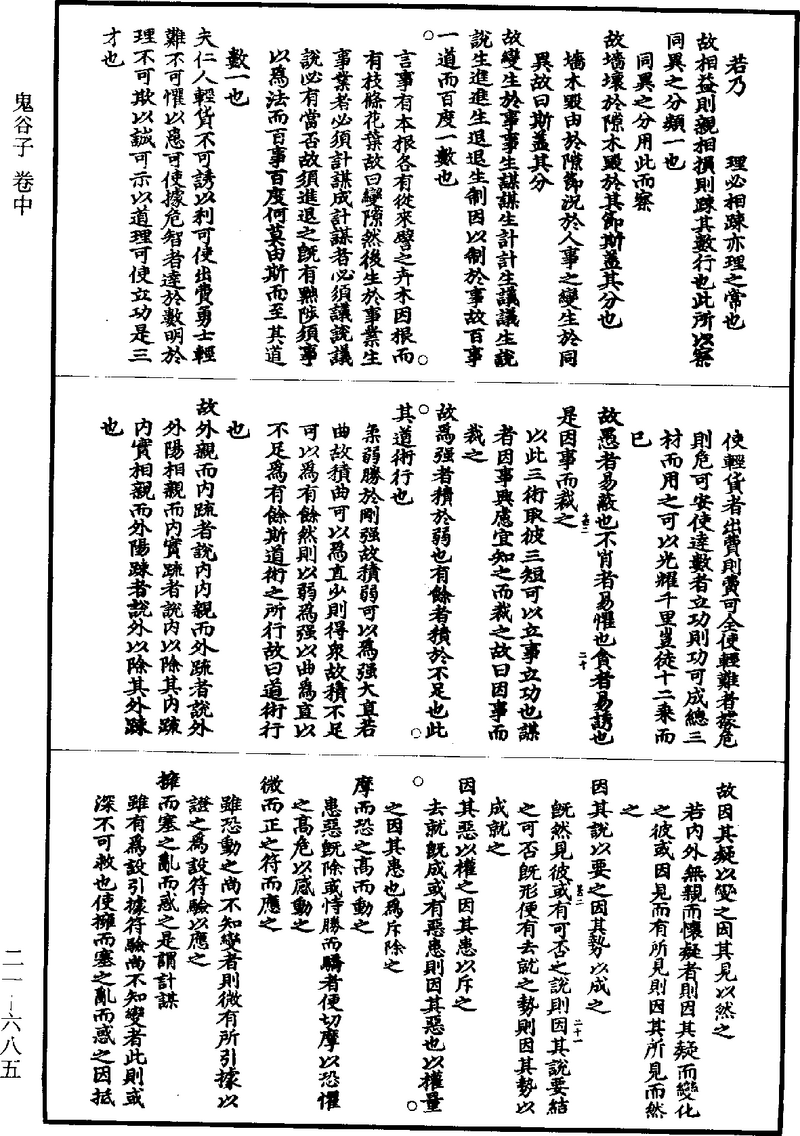 若乃　　理必相踈亦理之常也
故相益則親相損則踈其數行也此所以察
同異之分類一也
同異之分用此而察
故墻壞於隙木毀於其節斯蓋其分也
墻木毀由於隙節況於人事之變生於同
異故曰斯蓋其分
故變生於事事生謀謀生計計生議議生說
說生進進生退退生制因以制於事故百事
一道而百度一數也
言事有本根各有從來譬之卉木因根而
有枝條花葉故曰變隙然後生於事業生
事業者必須計謀成計謀者必須議說議
說必有當否故須進退之旣有黜陟須事
以爲法而百事百度何莫由斯而至其道
數一也
夫仁人輕貨不可誘以利可使出費勇士輕
難不可懼以患可使據危智者達於數明於
理不可欺以誠可示以道理可使立功是三
才也
使輕貨者出費則費可全使輕難者據危
則危可安使達數者立功則功可成總三
材而用之可以光耀千里豈徒十二乘而
已
故愚者易蔽也不肖者易懼也貪者易誘也
是因事而裁之
以此三術取彼三短可以立事立功也謀
者因事興慮宜知之而裁之故曰因事而
裁之
故爲强者積於弱也有餘者積於不足也此
其道術行也
柔弱勝於剛强故積弱可以爲强大直若
曲故積曲可以爲直少則得衆故積不足
可以爲有餘然則以弱爲强以曲爲直以
不足爲有餘斯道術之所行故曰道術行
也
故外親而內疏者說內內親而外疏者說外
外陽相親而內實疏者說內以除其內疏
內實相親而外陽踈者說外以除其外踈
也
故因其疑以變之因其見以然之
若內外無親而懷疑者則因其疑而變化
之彼或因見而有所見則因其所見而然
之
因其說以要之因其勢以成之
旣然見彼或有可否之說則因其說要結
之可否旣形便有去就之勢則因其勢以
成就之
因其惡以權之因其患以斥之
去就旣成或有惡患則因其惡也以權量
之因其患也爲斥除之
摩而恐之高而動之
患惡旣除或恃勝而驕者便切摩以恐懼
之高危以感動之
微而正之符而應之
雖恐動之尚不知變者則微有所引據以
證之爲設符驗以應之
擁而塞之亂而惑之是謂計謀
雖有爲設引據符驗尚不知變者此則或
深不可救也使擁而塞之亂而惑之因抵
鬼谷子 卷中
二一－六八五